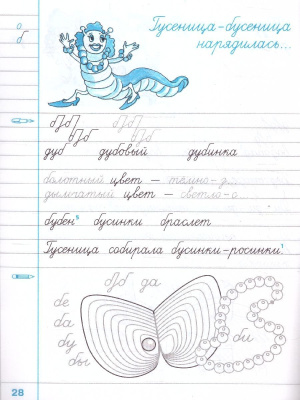 о
б
Гусеница-бусеница
нарядилась...
дуб дубовый дубинка
болотный цвет — тёмно-з...
дымчатый цвет — светло-с...
бубен⁵ бусинки браслет
Гусеница собирала бусинки-росинки.¹
да
бе
ба
бу
бы
би
28